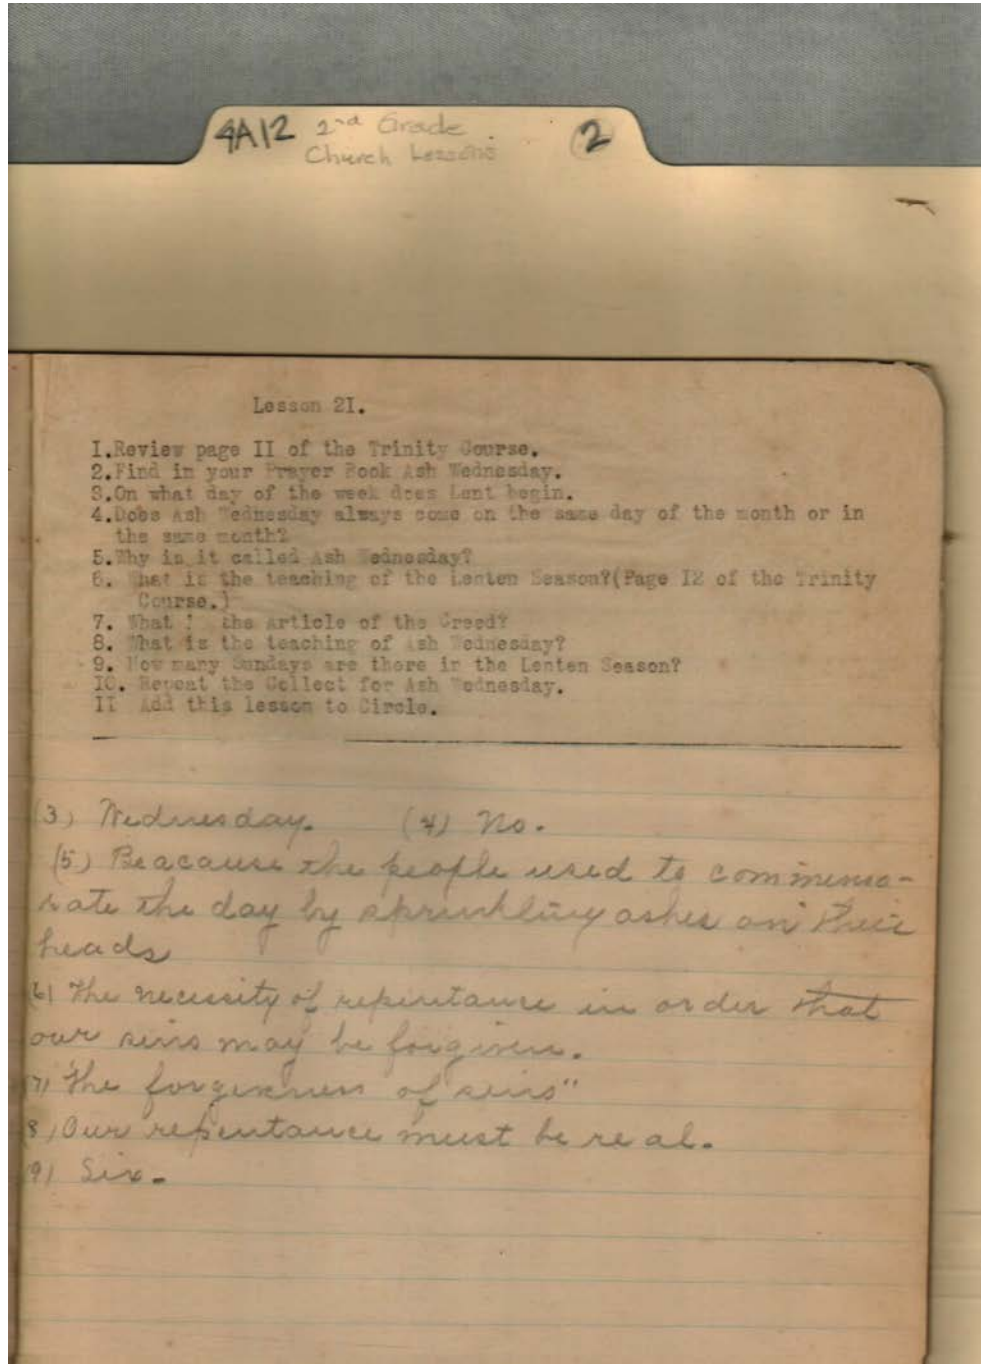 4A12 2nd Grade 2
Church Lessons
Lesson 2I.
I.Review page II of the Trinity Course.
2.Find in your Prayer Book Ash Wednesday.
3.On what day of the week does Lent begin.
4.Does Ash Wednesday always come on the same day of the month or in
the same month?
5.Why is it called Ash Wednesday?
6. What is the teaching of the Lenten Season?(Page I2 of the Trinity
Course.)
7. What the Article of the Creed?
8. What is the teaching of Ash Wednesday?
9. How many Sundays are there in the Lenten Season?
IO. Repeat the Collect for Ash Wednesday.
II Add this lesson to Circle.
(3) Wednesday. (4) No.
(5) Beacause the people used to commemo-
rate the day by sprinkling ashes on their
heads
(6) The necessity of repentance in order that
our sins may be forgiven.
(7) The forgiveness of sins"
8) Our repentance must be real.
(9) Six.